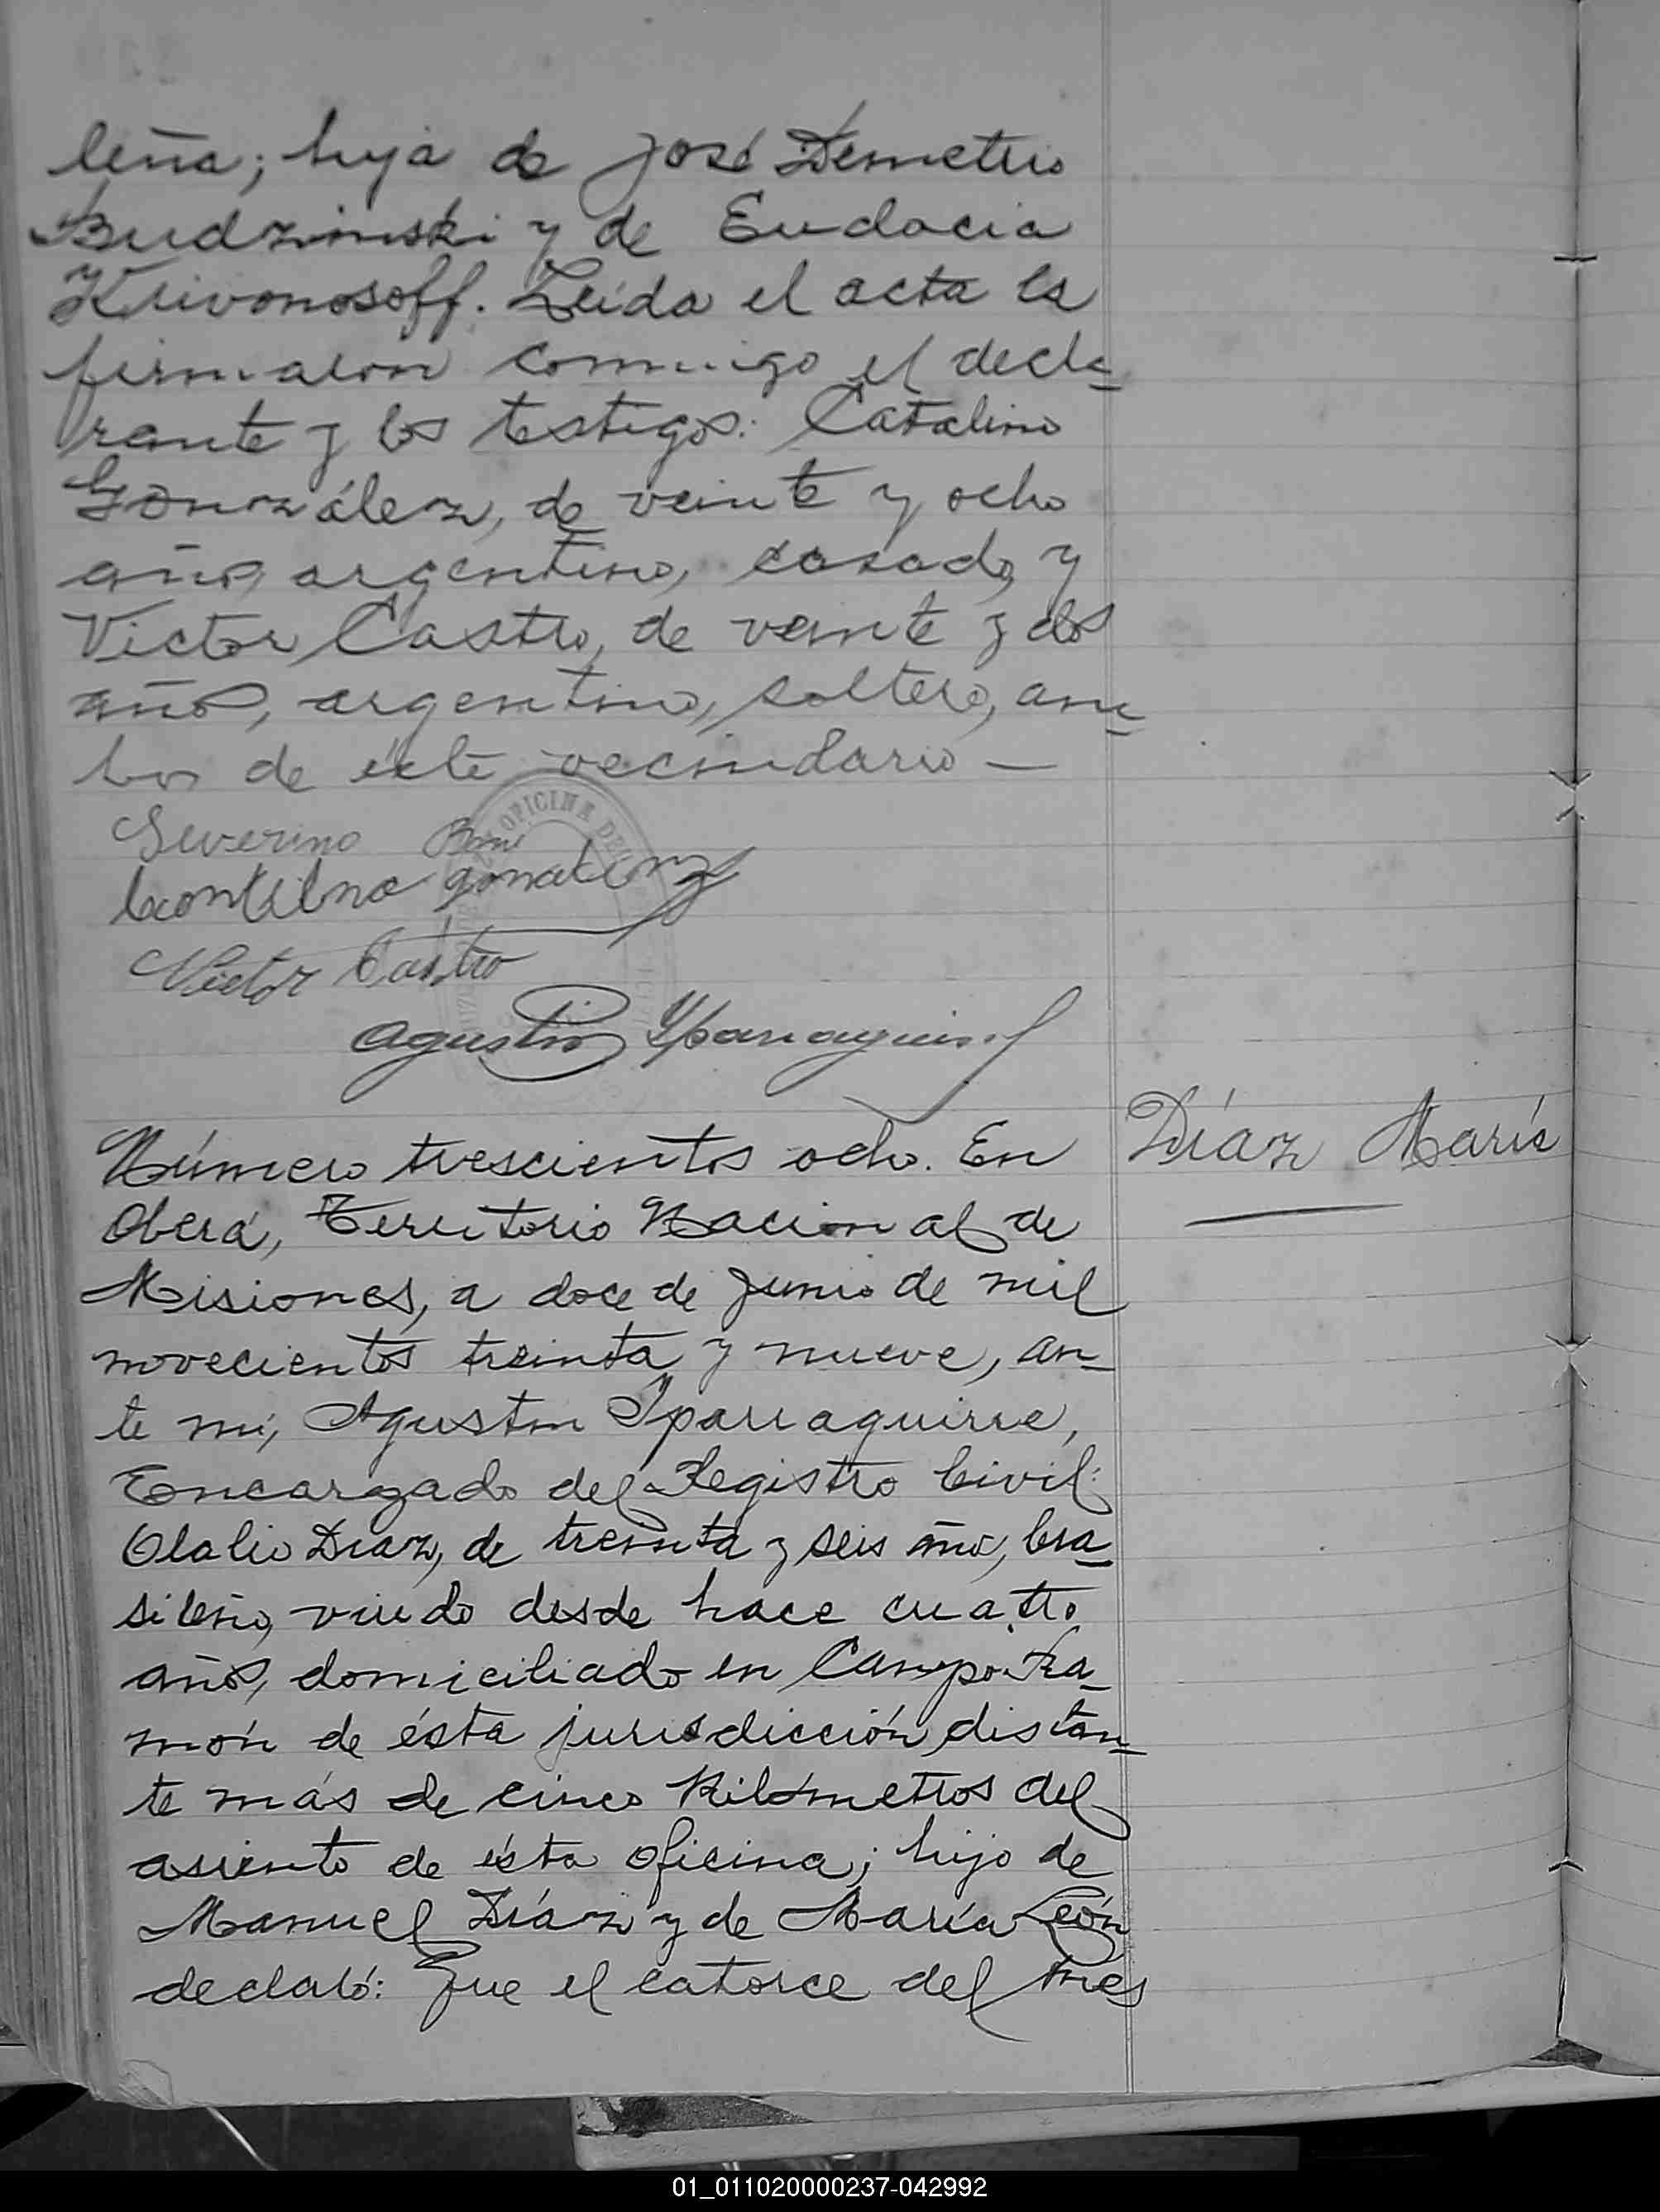 leña; hija de José Demetrio
Budzinski y de Eudocia
Krivonosoff. Leída el acta la
firmaron conmigo el decla-
rante y los testigos: Catalino
González, de veinte y ocho
años, argentino, casado, y
Victor Castro, de veinte y dos
años, argentino, soltero, am-
bos de éste vecindario —
Severino
OFICINA DEL
Victor Castro
Agustin Yparraguirre
Número trescientos ocho. En
Díaz María
Oberá, Territorio Nacional de
Misiones, a doce de Junio de mil
novecientos treinta y nueve, an-
te mí, Agustin Yparraguirre,
Encargado del Registro Civil:
Olalio Díaz, de treinta y seis años, bra-
sileño, viudo desde hace cuatro
años, domiciliado en Campo Ra-
món de ésta jurisdicción, distan-
te más de cinco Kilómetros del
asiento de ésta oficina; hijo de
Manuel Díaz y de María León
declaró: Que el catorce del mes
01_011020000237-042992